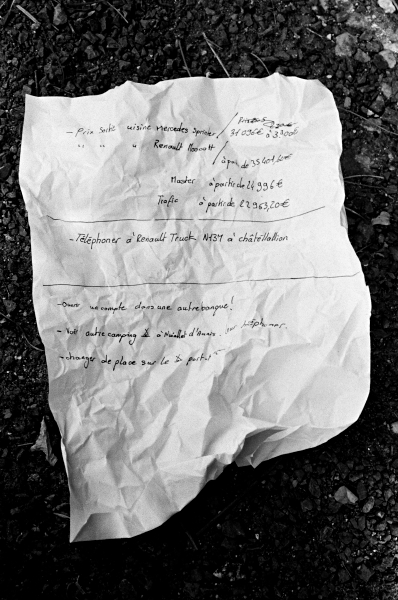 - Prix Sortie usine Mercedes Sprinter
31 096€ à 3 300€
" " " Renault Mascott
à partir de 35 401,60€
Master à partir de 24 996€
Trafic à partir de 22 963,20€
- Téléphoner à Renault Truck N137 à châtellallion
- Ouvrir un compte dans une autre banque!
- Voir autre camping à Maillot d'Aunis. téléphoner.
- changer de place sur le